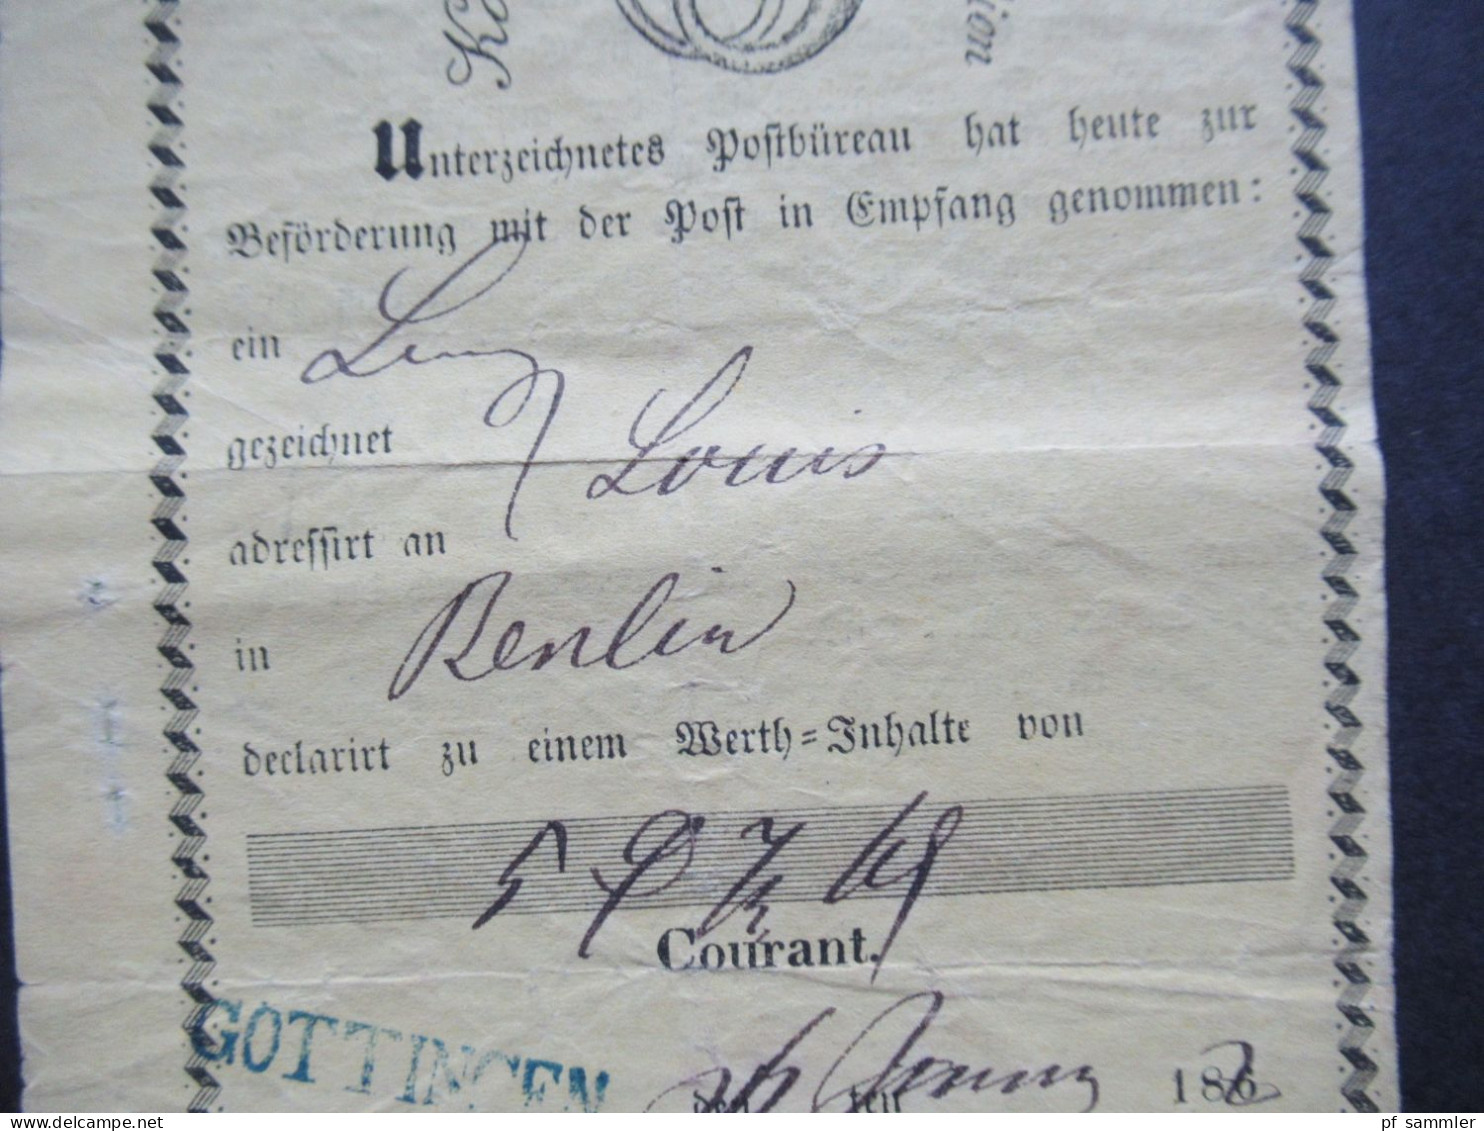 Unterzeichnetes Postbüreau hat heute zur
Beförderung mit der Post in Empfang genommen:
ein
gezeichnet Louis
adressirt an
in Berlin
declarirt zu einem Werth=Inhalte von
Courant.
GOTTINGEN
den ten 186
pf sammler